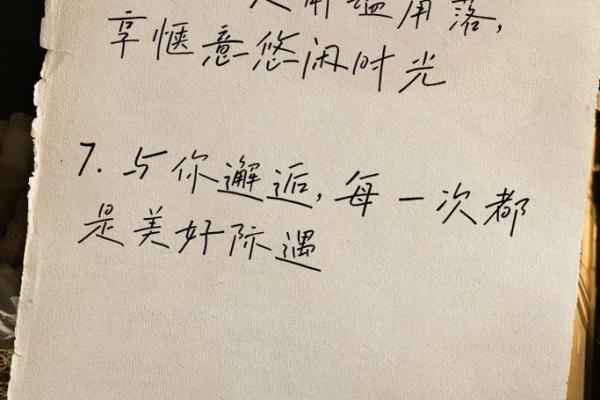 角落,
享惬意悠闲时光
7. 与你邂逅,每一次都
是美好际遇